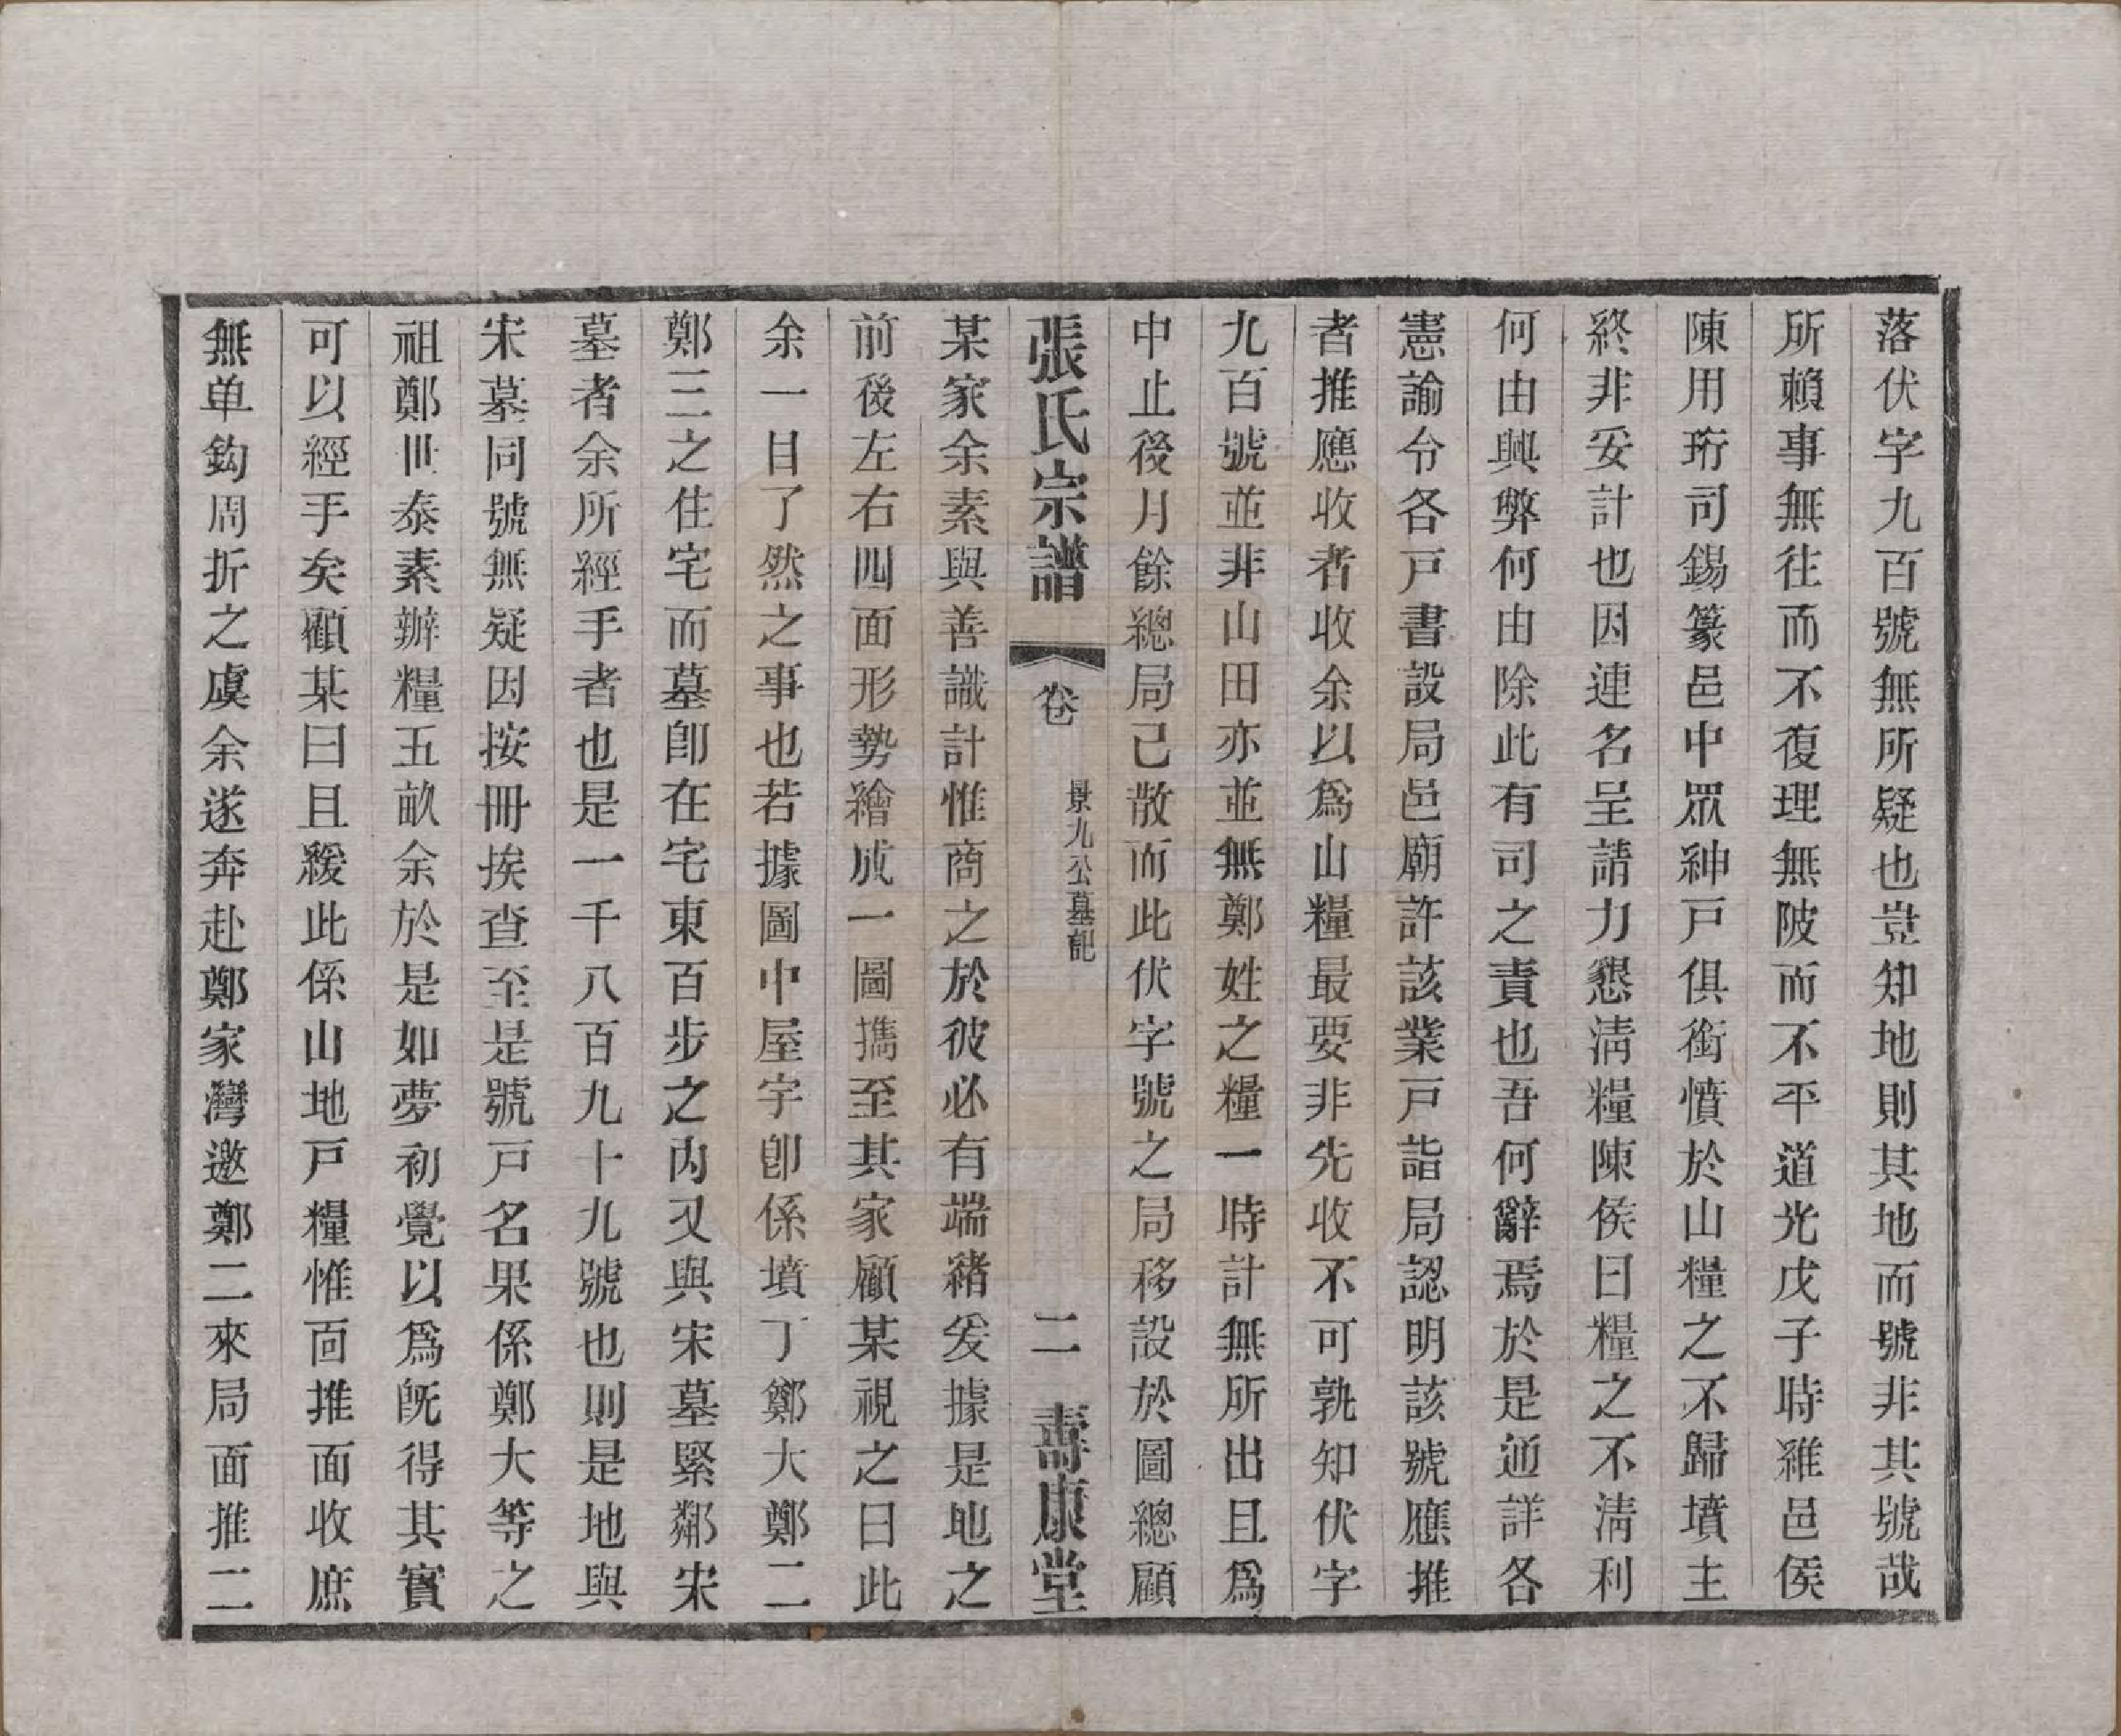 落伏字九百號無所疑也豈知地則其地而號非其號哉
所賴事無往而不復理無陂而不平道光戊子時雒邑侯
陳用珩司錫篆邑中眾紳戸俱銜憤於山糧之不歸墳主
終非妥計也因連名呈請力懇淸糧陳侯曰糧之不淸利
何由興弊何由除此有司之責也吾何辭焉於是通詳各
憲諭令各戸書設局邑廟許該業戸詣局認明該號應推
者推應收者收余以爲山糧最要非先收不可孰知伏字
九百號並非山田亦並無鄭姓之糧一時計無所出且爲
中止後月餘總局已散而此伏字號之局移設於圖總顧
張氏宗譜 卷 景九公墓記 二 壽康堂
某家余素與善識計惟商之於彼必有端緒爰據是地之
前後左右四面形勢繪成一圖攜至其家顧某視之曰此
余一日了然之事也若據圖中屋宇卽係墳丁鄭大鄭二
鄭三之住宅而墓卽在宅東百步之內又與宋墓緊鄰宋
墓者余所經手者也是一千八百九十九號也則是地與
宋墓同號無疑因按冊挨查至是號戸名果係鄭大等之
祖鄭世泰素辦糧五畝余於是如夢初覺以爲旣得其實
可以經手矣顧某曰且緩此係山地戸糧惟面推面收庶
無单鈎周折之虞余遂奔赴鄭家灣邀鄭二來局面推二